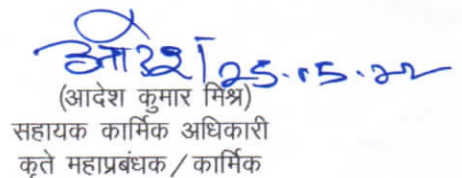 आदेश 25.05.22
(आदेश कुमार मिश्र)
सहायक कार्मिक अधिकारी
कृते महाप्रबंधक / कार्मिक